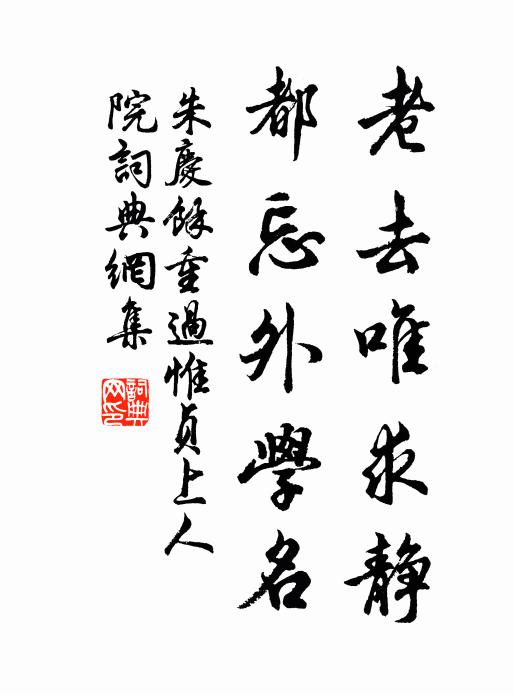 老去唯求静
都忘外學名
朱慶餘重過惟貞上人
院詞典網集
詞典
网印